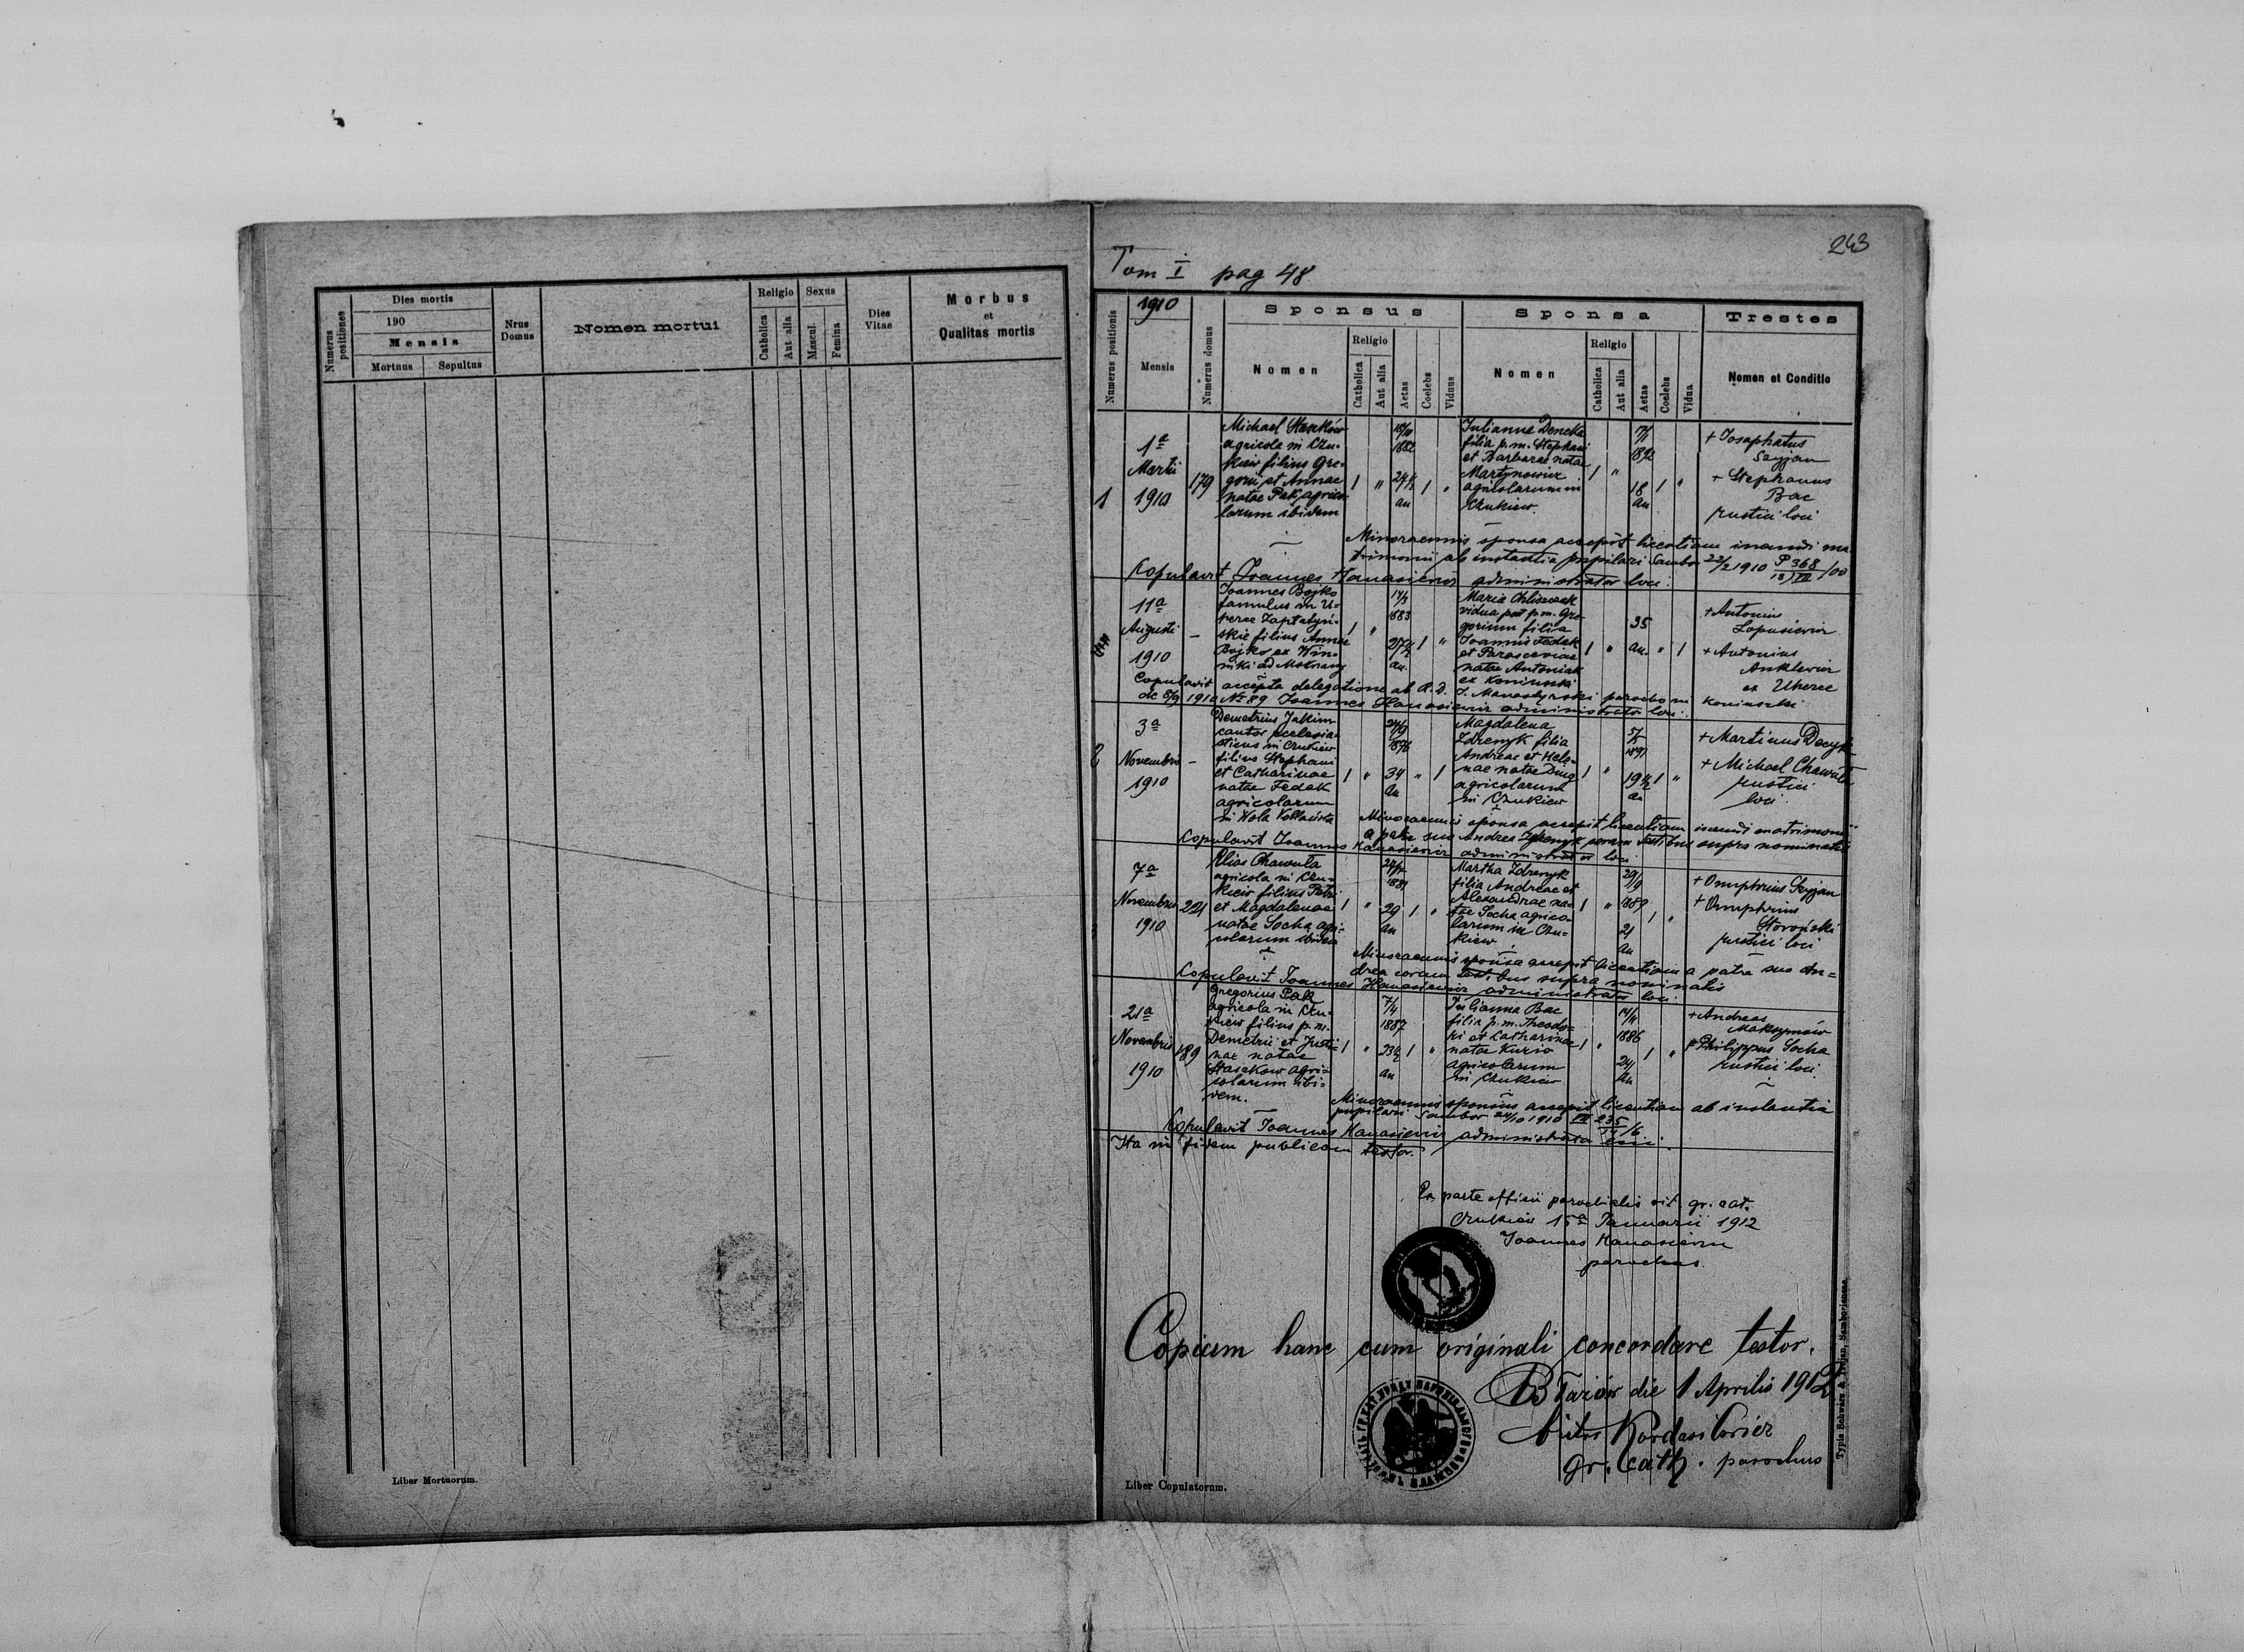 Numerus positiones
Dies mortis
190
Mensis
Mortuus
Sepultus
Nrus Domus
Nomen mortui
Religio
Catholica
Aut alia
Sexus
Mascul.
Femina
Dies Vitae
Morbus
et
Qualitas mortis
Liber Mortuorum.
243
Tom I pag 48
Numerus positionis
1910
Mensis
Numerus domus
Sponsus
Nomen
Religio
Catholica
Aut alia
Aetas
Coelebs
Viduus
Sponsa
Nomen
Religio
Catholica
Aut alia
Aetas
Coelebs
Vidua
Trestes
Nomen et Conditio
1
1a
Martii
1910
179
Michael Stasków
agricola in Czu-
kiew filius Gre-
gorii et Annae
natae Pak agrico
larum ibidem
1882
an
Julianna
filia p.m. Stephani
et Barbarae natae
Martynowicz
agricolarum in
Czukiew.
1892
18
an
+ Josaphatus
Szyjan
+ Stephanus
Bac
rustici loci
Minoraennis sponsa accepit licentiam ineundi ma
trimonii ab instantia pupilari Sambor 22/2 1910
Copulavit Joannes Hanasiewicz administrator loci.
11a
Augusti
1910
Joannes Bojko
famulus in U-
herce Zaplatyń-
skie filius Annae
Bojko ex Win-
niki ad Mokrany
1883
an.
Maria
vidua post p.m. Gre
gorium filia
Joannis Fedak
et Parasceviae
natae Antoniak
ex Koniuszki
35
an.
+ Antonius
Lopusiewicz
+ Antonius
Anklewicz
ex Uherce
Copulavit accepta delegatione ab R.d. J. parocho in Koniuszki
1910 No 89 Joannes Hanasiewicz administrator loci.
2
3a
Novembris
1910
Demetrius Jakim
cantor ecclesia-
sticus in Czukiew
filius Stephani
et Catharinae
natae Fedak
agricolarum
in Wola
1876
34
an
Magdalena
Zdrenyk filia
Andreae et Hele-
nae natae
agricolarum
in Czukiew
1891
19 1/2
an
+ Martinus
+ Michael Chawula
rustici
loci.
Minoraennis sponsa accepit licentiam ineundi matrimonii
a patre suo Andrea Zdrenyk coram testibus supra nominatis
Copulavit Joannes Hanasiewicz administrator loci.
7a
Novembris
1910
221
Elias Chawula
agricola in Czu-
kiew filius Petri
et Magdalenae
natae Socha agri-
colarum ibidem
1881
29
an
Martha Zdrenyk
filia Andreae et
Alexandrae na-
tae Socha agrico-
larum in Czu-
kiew
29/9
1889
21
an
+ Onuphrius Szyjan
+ Onuphrius
rustici loci
Minoraennis sponsa accepit licentiam a patre suo An-
drea coram testibus supra nominatis
Copulavit Joannes Hanasiewicz administrator loci.
21a
Novembris
1910
189
Gregorius Pak
agricola in Czu-
kiew filius p.m.
Demetrii et Justi-
nae natae
Stasków agri-
colarum ibi-
dem.
1887
23 1/2
an
Julianna Bac
filia p.m. Theodo-
ri et Catharinae
natae Kurio
agricolarum
in Czukiew
1886
24
an
+ Andreas
Maksymów
+ Philippus Socha
rustici loci.
Minoraennis sponsus accepit licentiam ab instantia
pupilari Sambor 1910
Copulavit Joannes Hanasiewicz administrator loci.
Ita in fidem publicam testor.
Ex parte officii parochialis rit. gr. cat.
Czukiew 15a Januarii 1912
Joannes Hanasiewicz
parochus.
Copiam hanc cum originali concordare testor.
die 1 Aprilis 1912
gr. cath. parochus
Liber Copulatorum.
Typis Schwarz & Trojan, Samboriensae